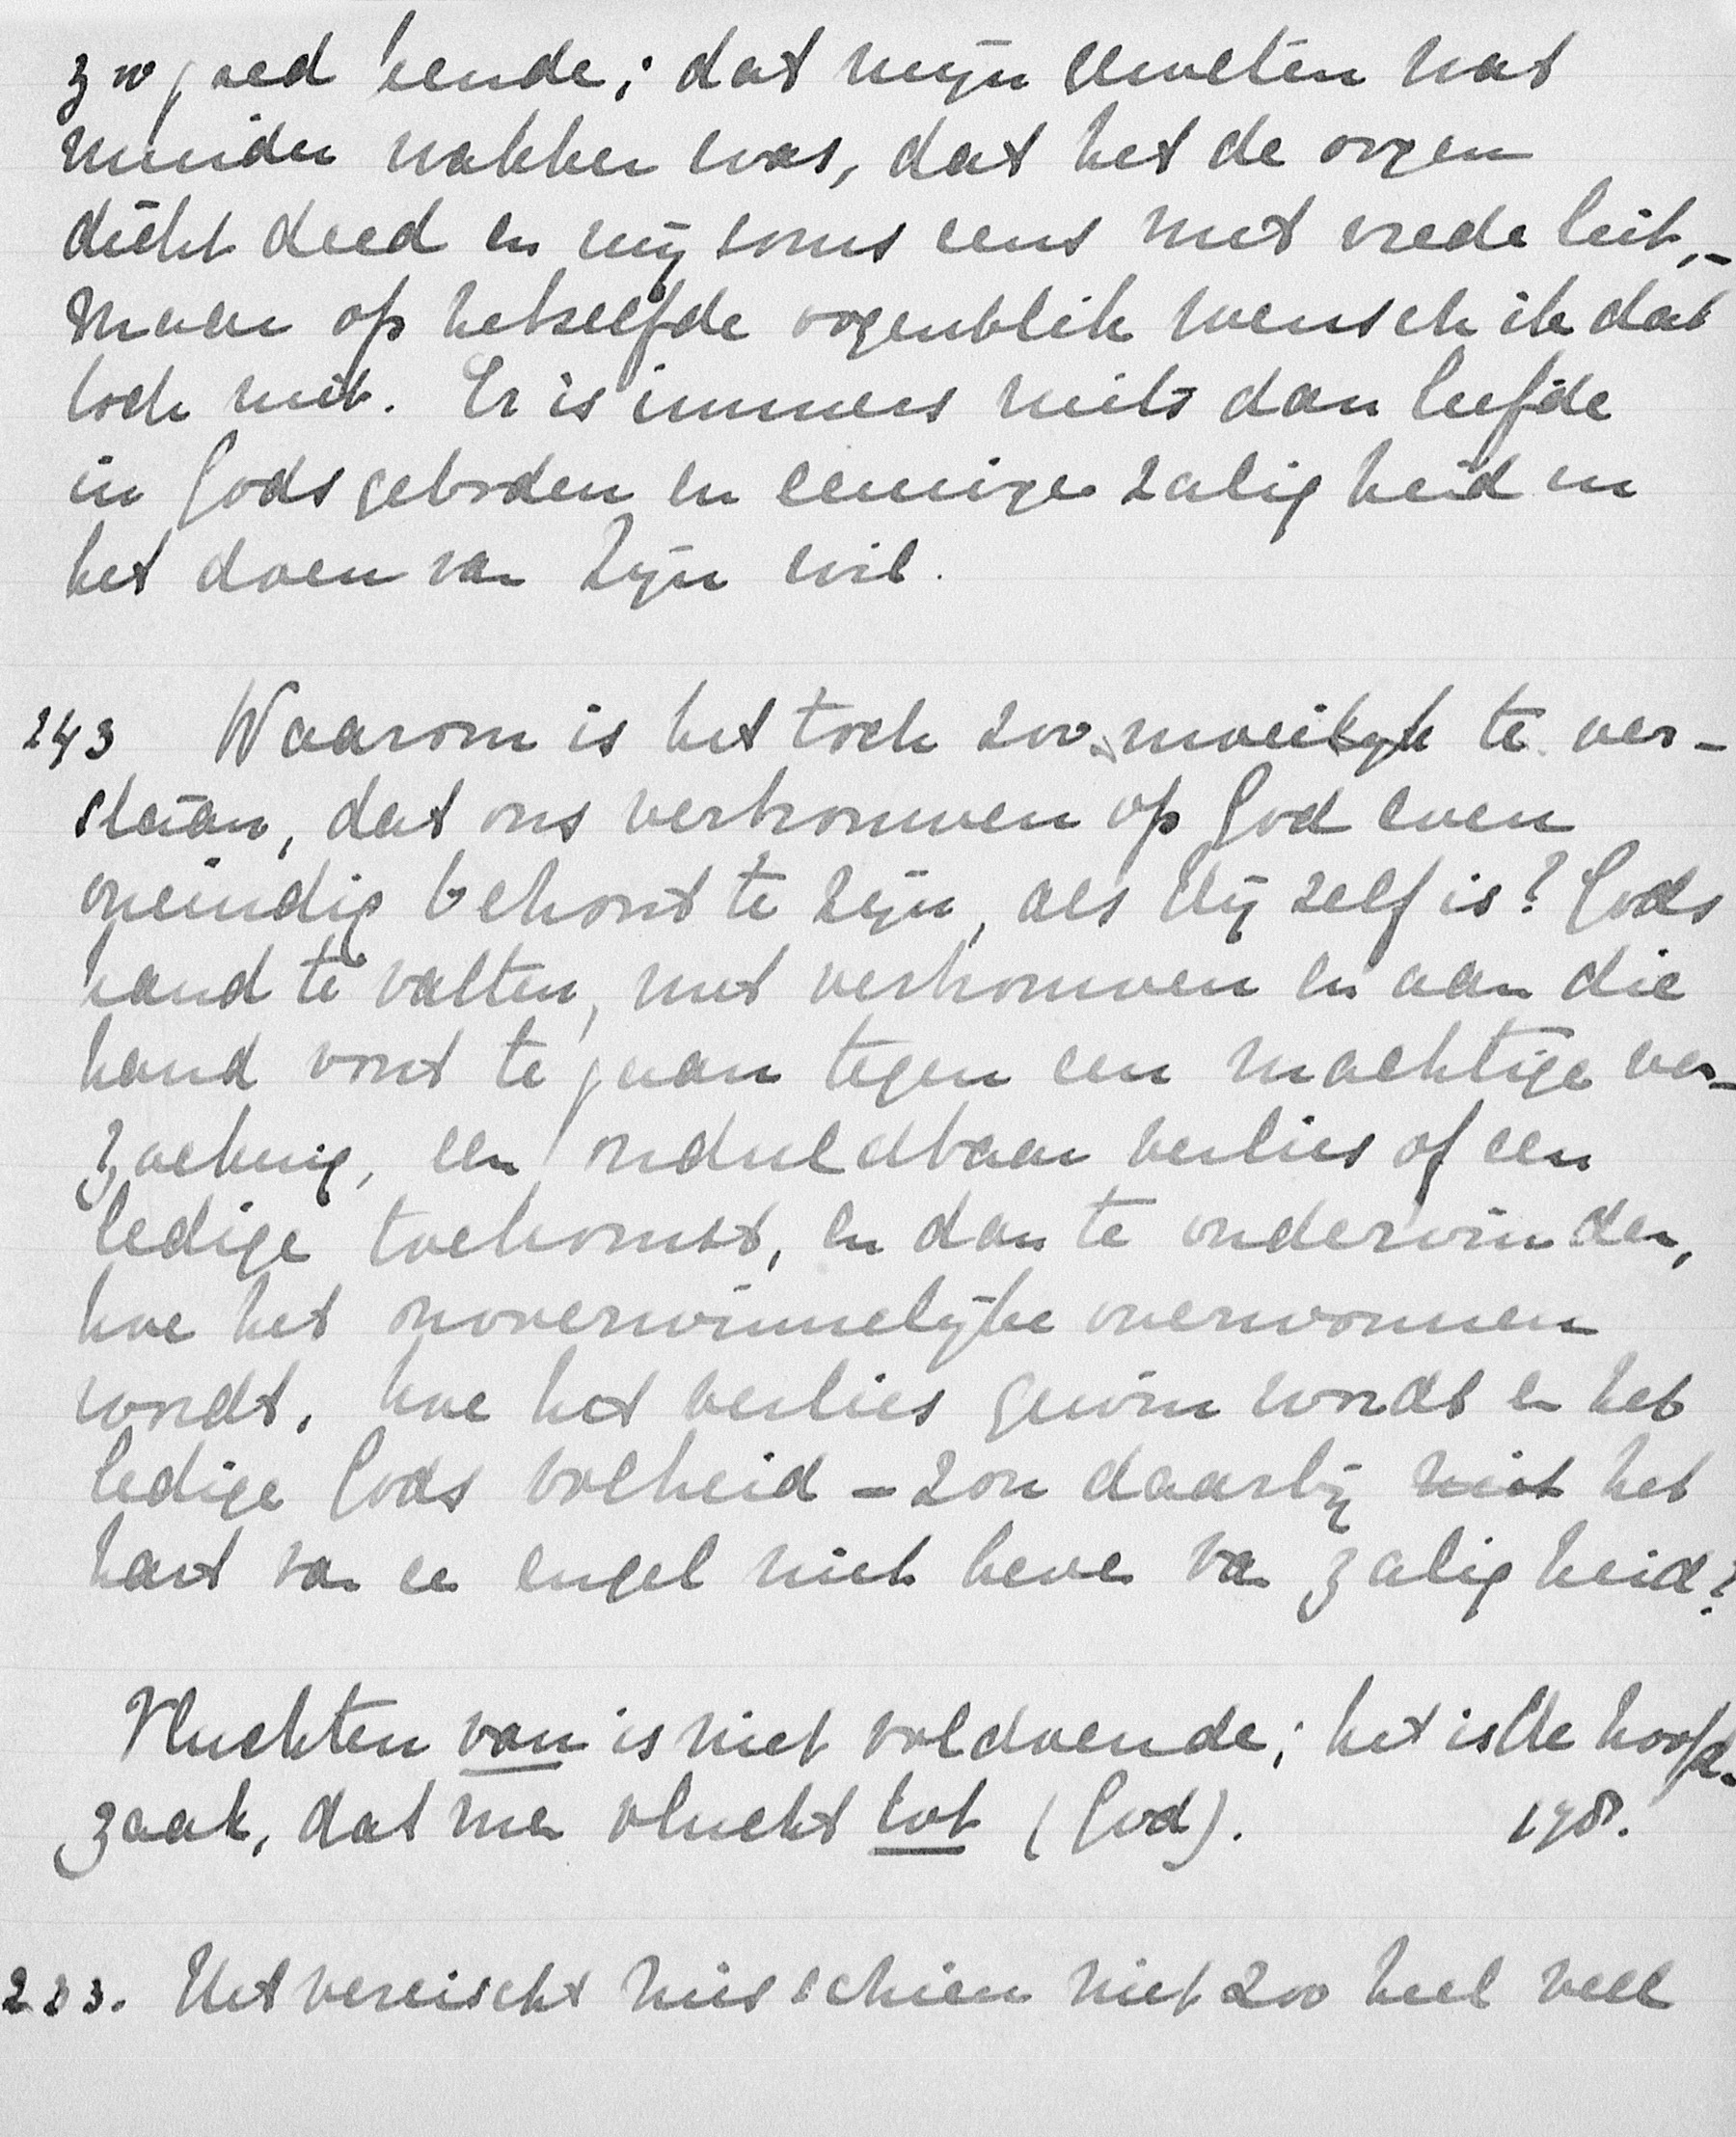 zoo goed kende; dat mijn geweten wat
minder wakker was, dat het de oogen
dicht deed en mij soms eens met vrede liet,-
maar op hetzelfde oogenblik wensch ik dat
toch niet. Er is immers niets dan liefde
in Gods geboden en eeuwige zaligheid in
het doen van Zijn wil.
243 Waarom is het toch zoo moeilijk te ver-
staan, dat ons vertrouwen op God even
oneindig behoort te zijn, als Hij zelf is? Gods
hand te vatten, met vertrouwen en aan die
hand voort te gaan tegen een machtige ver-
zoeking, een onduldbaar verlies of een
ledige toekomst, en dan te ondervinden,
hoe het onoverwinnelijke overwonnen
wordt, hoe het verlies gewin wordt en het
ledige Gods volheid - zou daarbij niet het
hart van een engel niet beven van zaligheid?
Vluchten van is niet voldoende; het is de hoofd-
zaak, dat men vlucht tot (God). 178.
233. Het vereischt misschien niet zoo heel veel